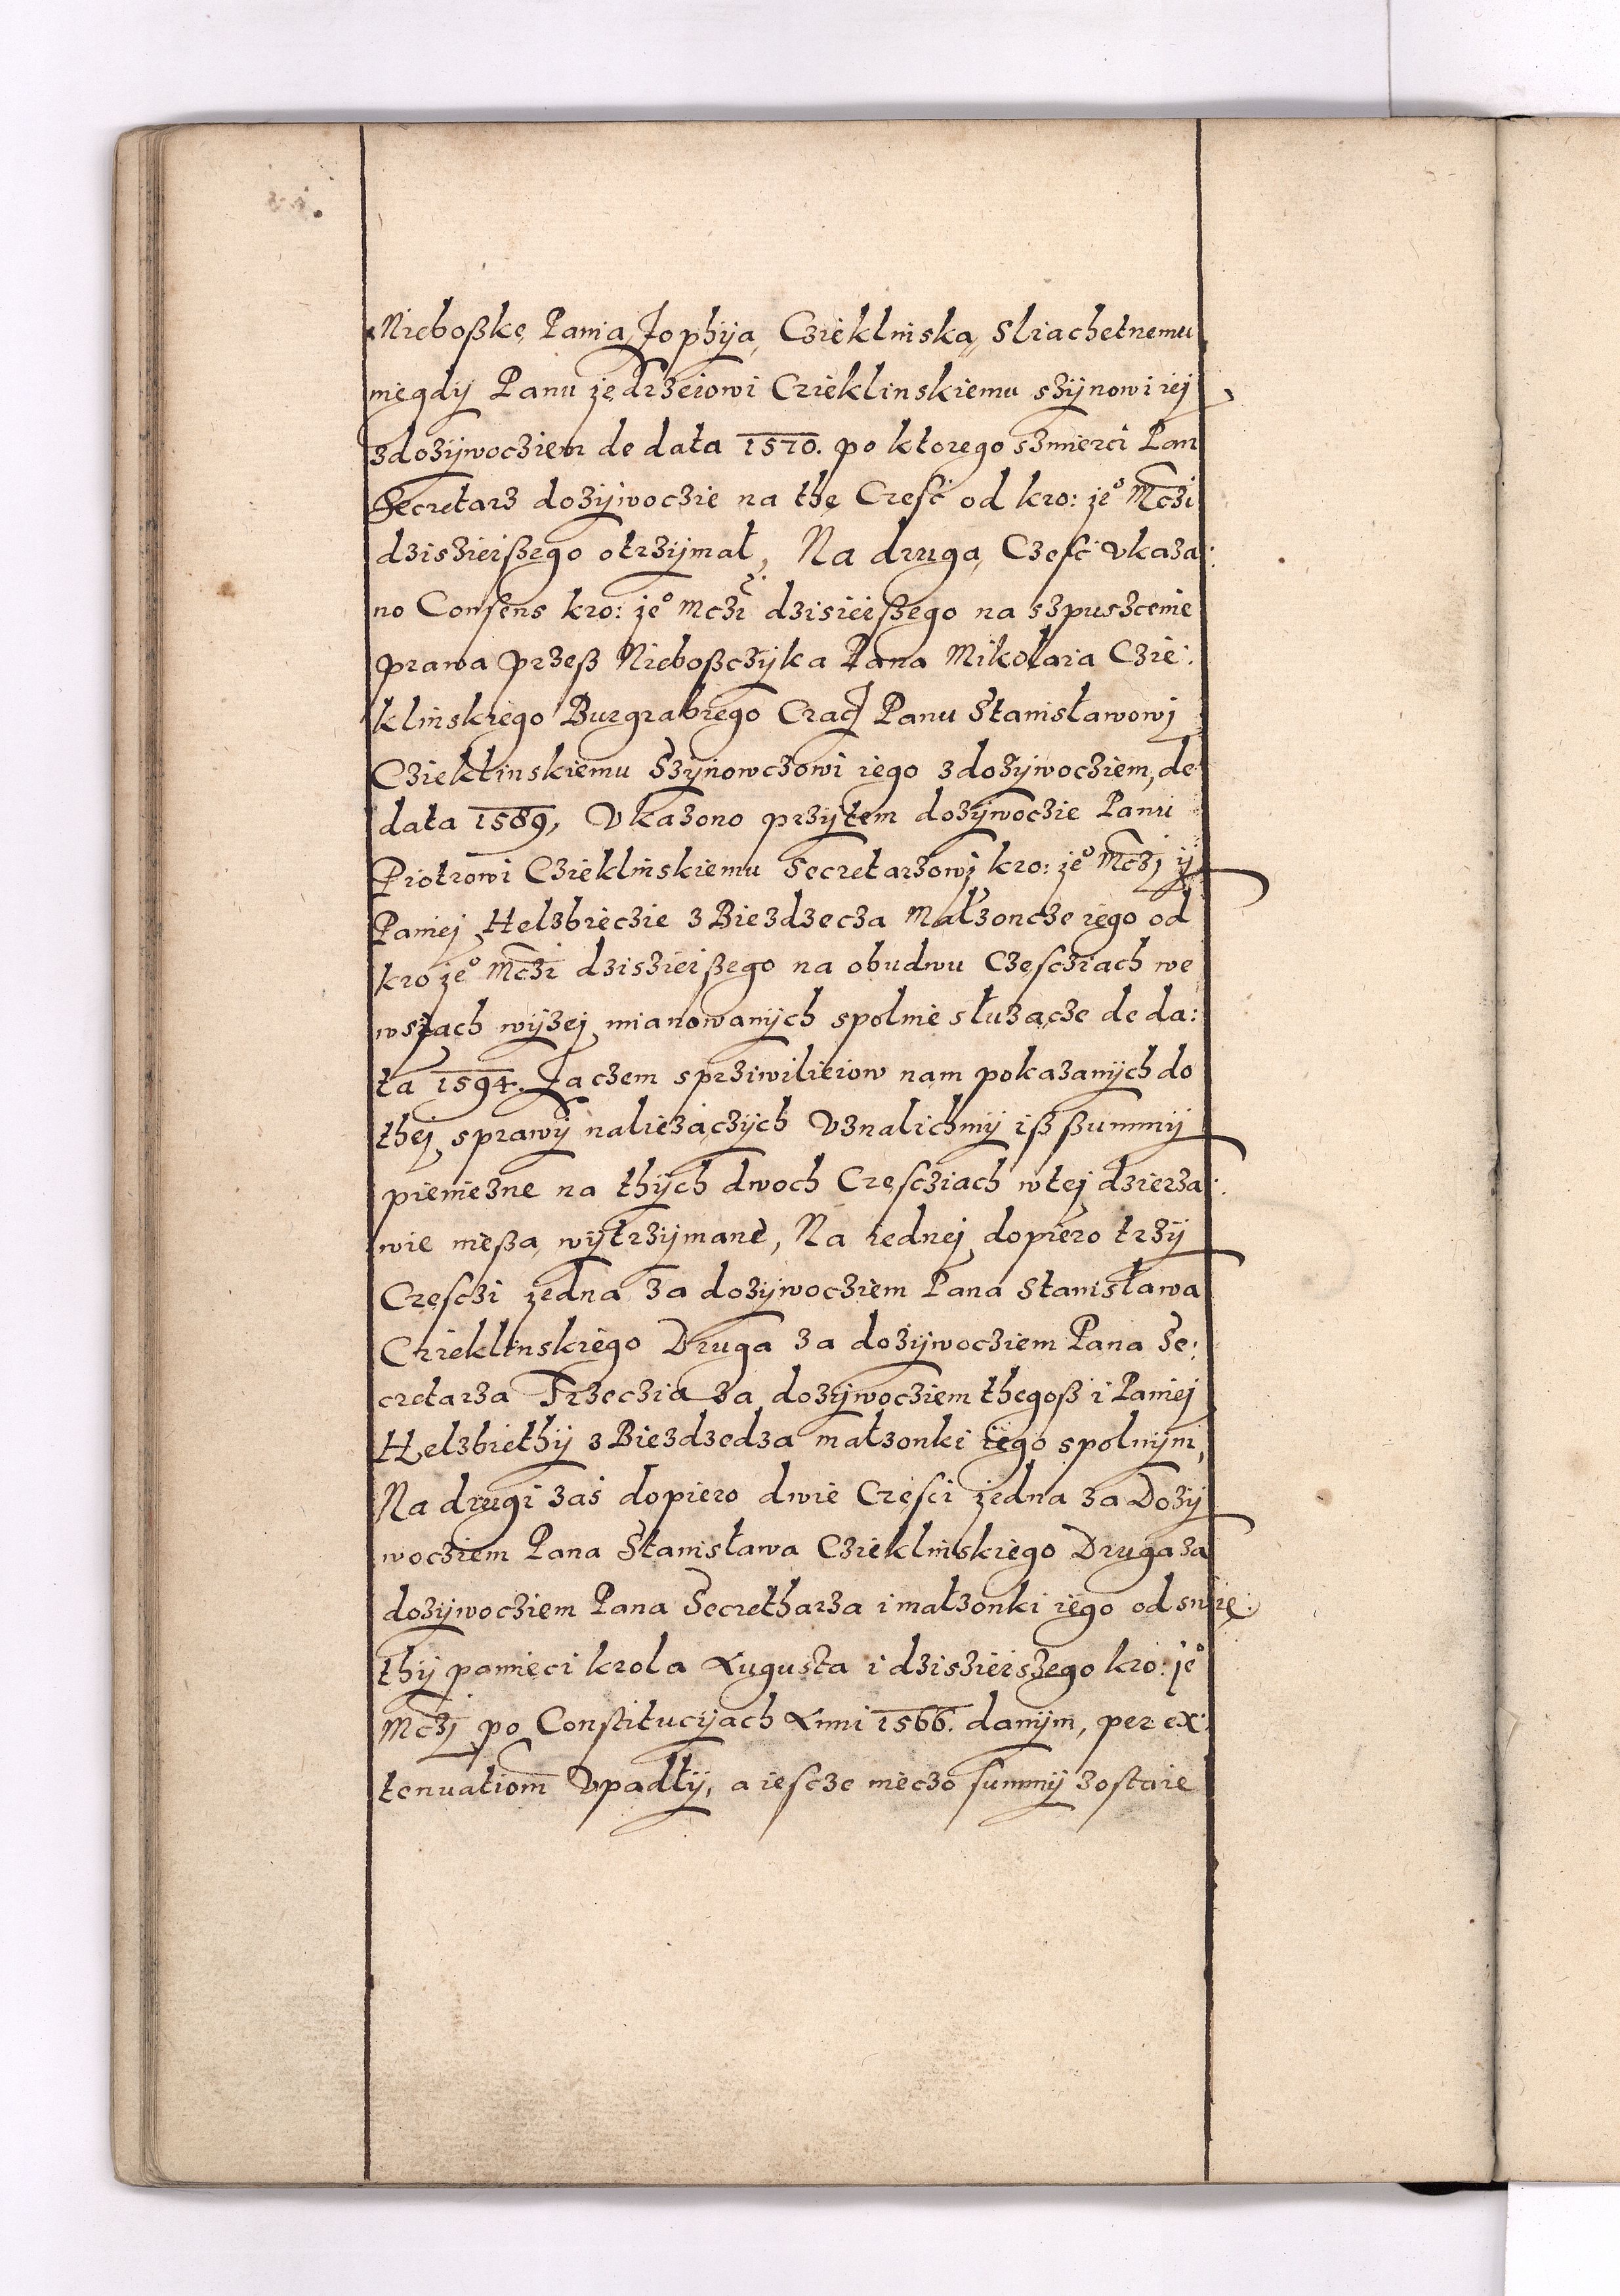 Nieboßkę Panią Zophiją Czieklinską Sliachetnemu
niegdÿ Panu jędrzeiowi Czieklinskiemu szÿnowi iej
zdozÿwocziem de data 1570. po ktorego szmierci Pan
Secretarz dozÿwoczie na thę Czesć od kro: jeº Mczi
dziszieißego otrzÿmał, Na drugą Czesć vkaza:
no Consens kro: jeº Mczi dzisieißego na szpuszcenie
prawa przeß Nieboßczÿka Pana Mikołaia Czie:
klinskiego Burgrabiego Crac Panu Stanisławowj
Czieklinskiemu Szÿnowczowi iego zdozÿwocziem, de
data 1589, Vkazono przÿtem dozÿwoczie Panu
Piotrowi Czieklinskiemu Secretarzowj kro: jeº Mczj ÿ
Paniej Helzbieczie z Biezdzecza Małzoncze iego od
kro jeº Mczi dziszieißego na obudwu Częscziach we
wsząch wÿzej mianowanÿch spolnie słuzącze de da:
ta 1594. Zaczem sprziwilieiow nam pokazanÿch do
thej sprawÿ naliezączÿch Vznalichmÿ iß ßummÿ
pieniezne na thÿch dwoch Częscziach wtej dzierza:
wie nießą wÿtrzÿmane, Na iednej dopiero trzÿ
Częsczi jedna za dozÿwocziem Pana Stanisława
Czieklinskiego Druga za dozÿwocziem Pana Se:
cretarza Trzeczia za dozÿwocziem thegoß i Paniej
Helzbiethÿ z Biezdzedza małzonki iego spolnÿm,
Na drugi zaś dopiero dwie Częsci jedna za Dozÿ
wocziem Pana Stanisława Czieklinskiego Druga za
dozÿwocziem Pana Secretharza i małzonki iego od swię:
thÿ pamięci krola Augusta i dziszieiszego kro: jeº
Mczj po Constitucÿach Anni 1566. danÿm, per ex:
tenuationem Vpadłÿ, a iescze nieczo summÿ zostaie